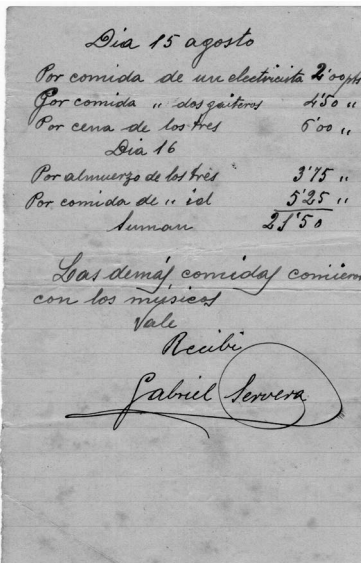 Dia 15 agosto
Por comida de un electricista 2'00 pts
Por comida " dos gaiteros 4'50 "
Por cena de los tres 6'00 "
Dia 16
Por almuerzo de los tres 3'75 "
Por comida de " id 5'25 "
Suman 21'50
Las demás comidas comieron
con los músicos
Vale
Recibi
Gabriel Servera